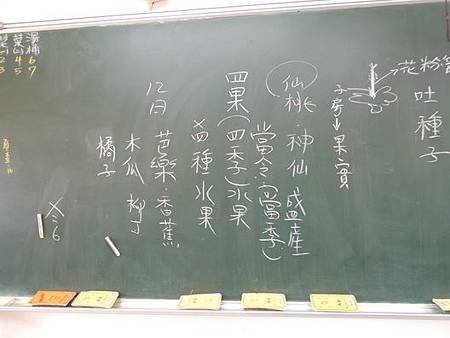 花粉管
吐種子
子房→果實
仙桃·神仙 盛產
當令(當季)
四果(四季)水果
×四種水果
12月 芭樂·香蕉
木瓜 柳丁
橘子
湯桶67